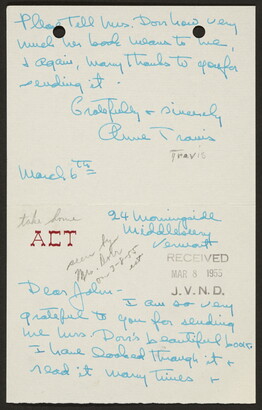 Please tell Mrs. Dorr how very
much her book means to me,
& again, many thanks to you for
sending it.
Gratefully & sincerely
Anne Travis
TRAVIS
March 6th
take home
ACT
seen by
Mrs. Dorr
on 3-8-55
24 Morningside
Middlebury
Vermont
RECEIVED
MAR 8 1955
J. V. N. D.
Dear John -
I am so very
grateful to you for sending
me Mrs. Dorr's beautiful book
I have looked through it &
read it many times &